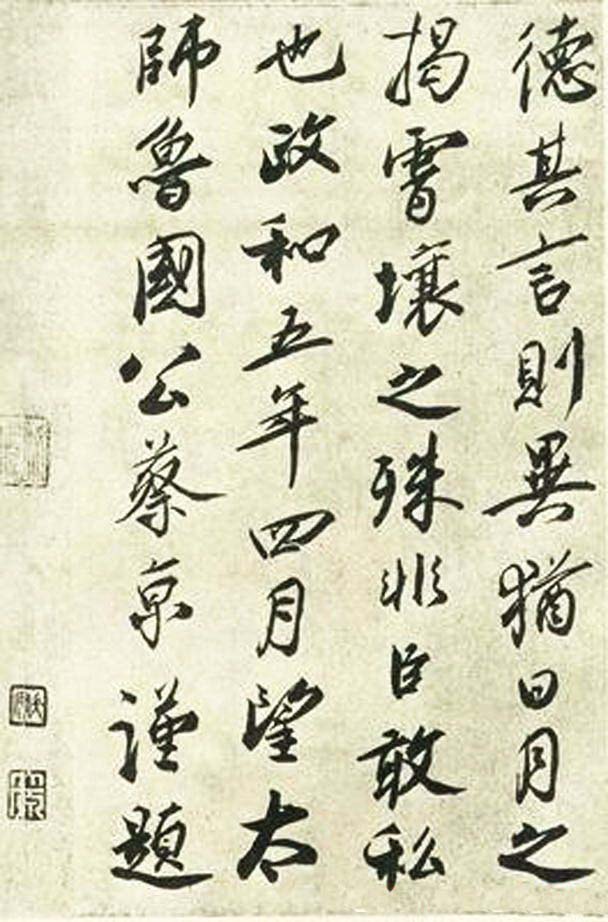 德其言則異猶日月之
揭霄壤之殊非臣敢私
也政和五年四月望太
師魯國公蔡京謹題